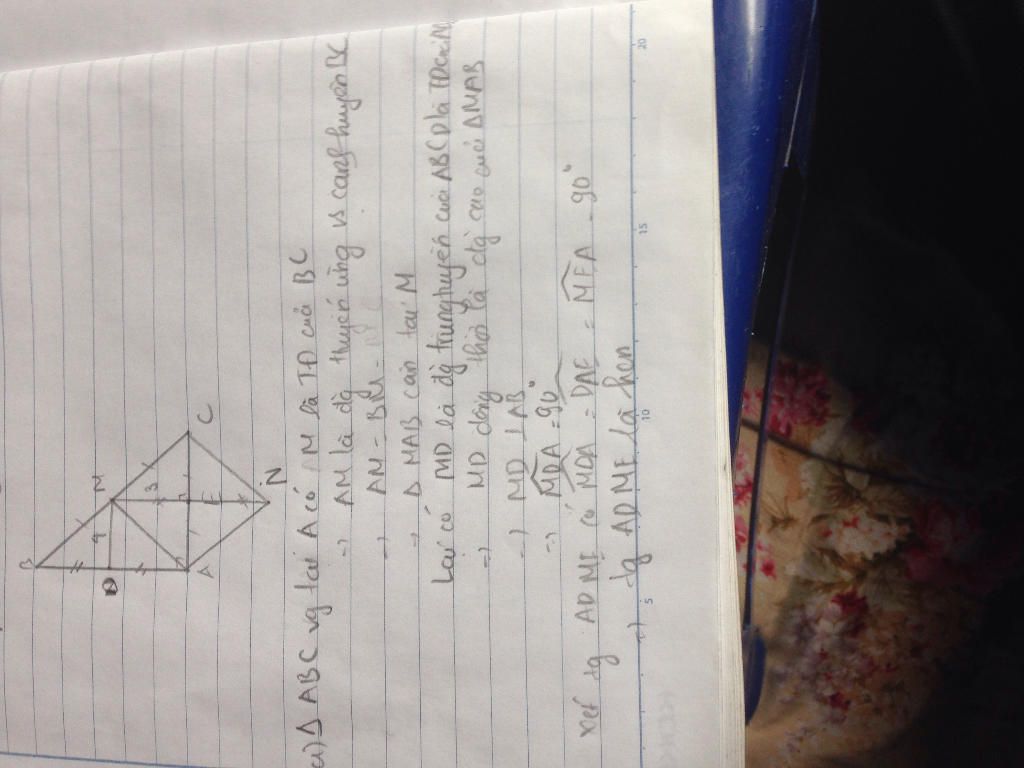 B
M
D
4
3
C
E
A
N
a) Δ ABC vg tại A có M là TĐ của BC
→ AM là đg tuyến ứng vs cạnh huyền BC
→ AM = BM =
→ Δ MAB cân tại M
Lại có MD là đg trung tuyến của AB (D là TĐ của
→ MD đồng thời là đg cao của ΔMAB
→ MD ⊥ AB
→ MDA = 90°
xét tg ADME có MDA = DAE = MEA = 90°
→ tg ADME là hcn
5
10
15
20